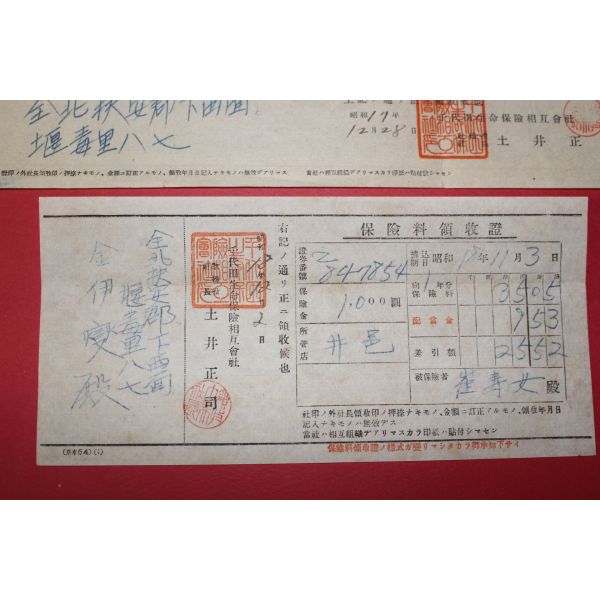 全北扶安郡下西面
堰毒里八七
上記ノ通リ正
昭和17年
12月28日
平民生命保險相互會社
土井正
社印ノ外社長領收印ノ押捺ナキモノ、金額ニ訂正アルモノ、領收年月日記入ナキモノハ無效デアリマス
當社ハ相互組織デアリマスカラ印紙ハ貼付致シマセン
保險料領收證
證券番號
847854
保險金
1,000圓
所管店
井邑
拂込期日
昭和18年11月3日
向1年分保險料
3505
配當金
953
差引額
2552
被保險者
崔壽女殿
右記ノ通リ正ニ領收候也
昭和
12月2日
生命保險相互會社
土井正司
全北扶安郡下西面
堰毒里八七
全伊燮殿
社印ノ外社長領收印ノ押捺ナキモノ、金額ニ訂正アルモノ、領收年月日
記入ナキモノハ無效デス
當社ハ相互組織デアリマスカラ印紙ハ貼付シマセン
保險料領收證ノ樣式ガ變リマシタカラ御承知下サイ